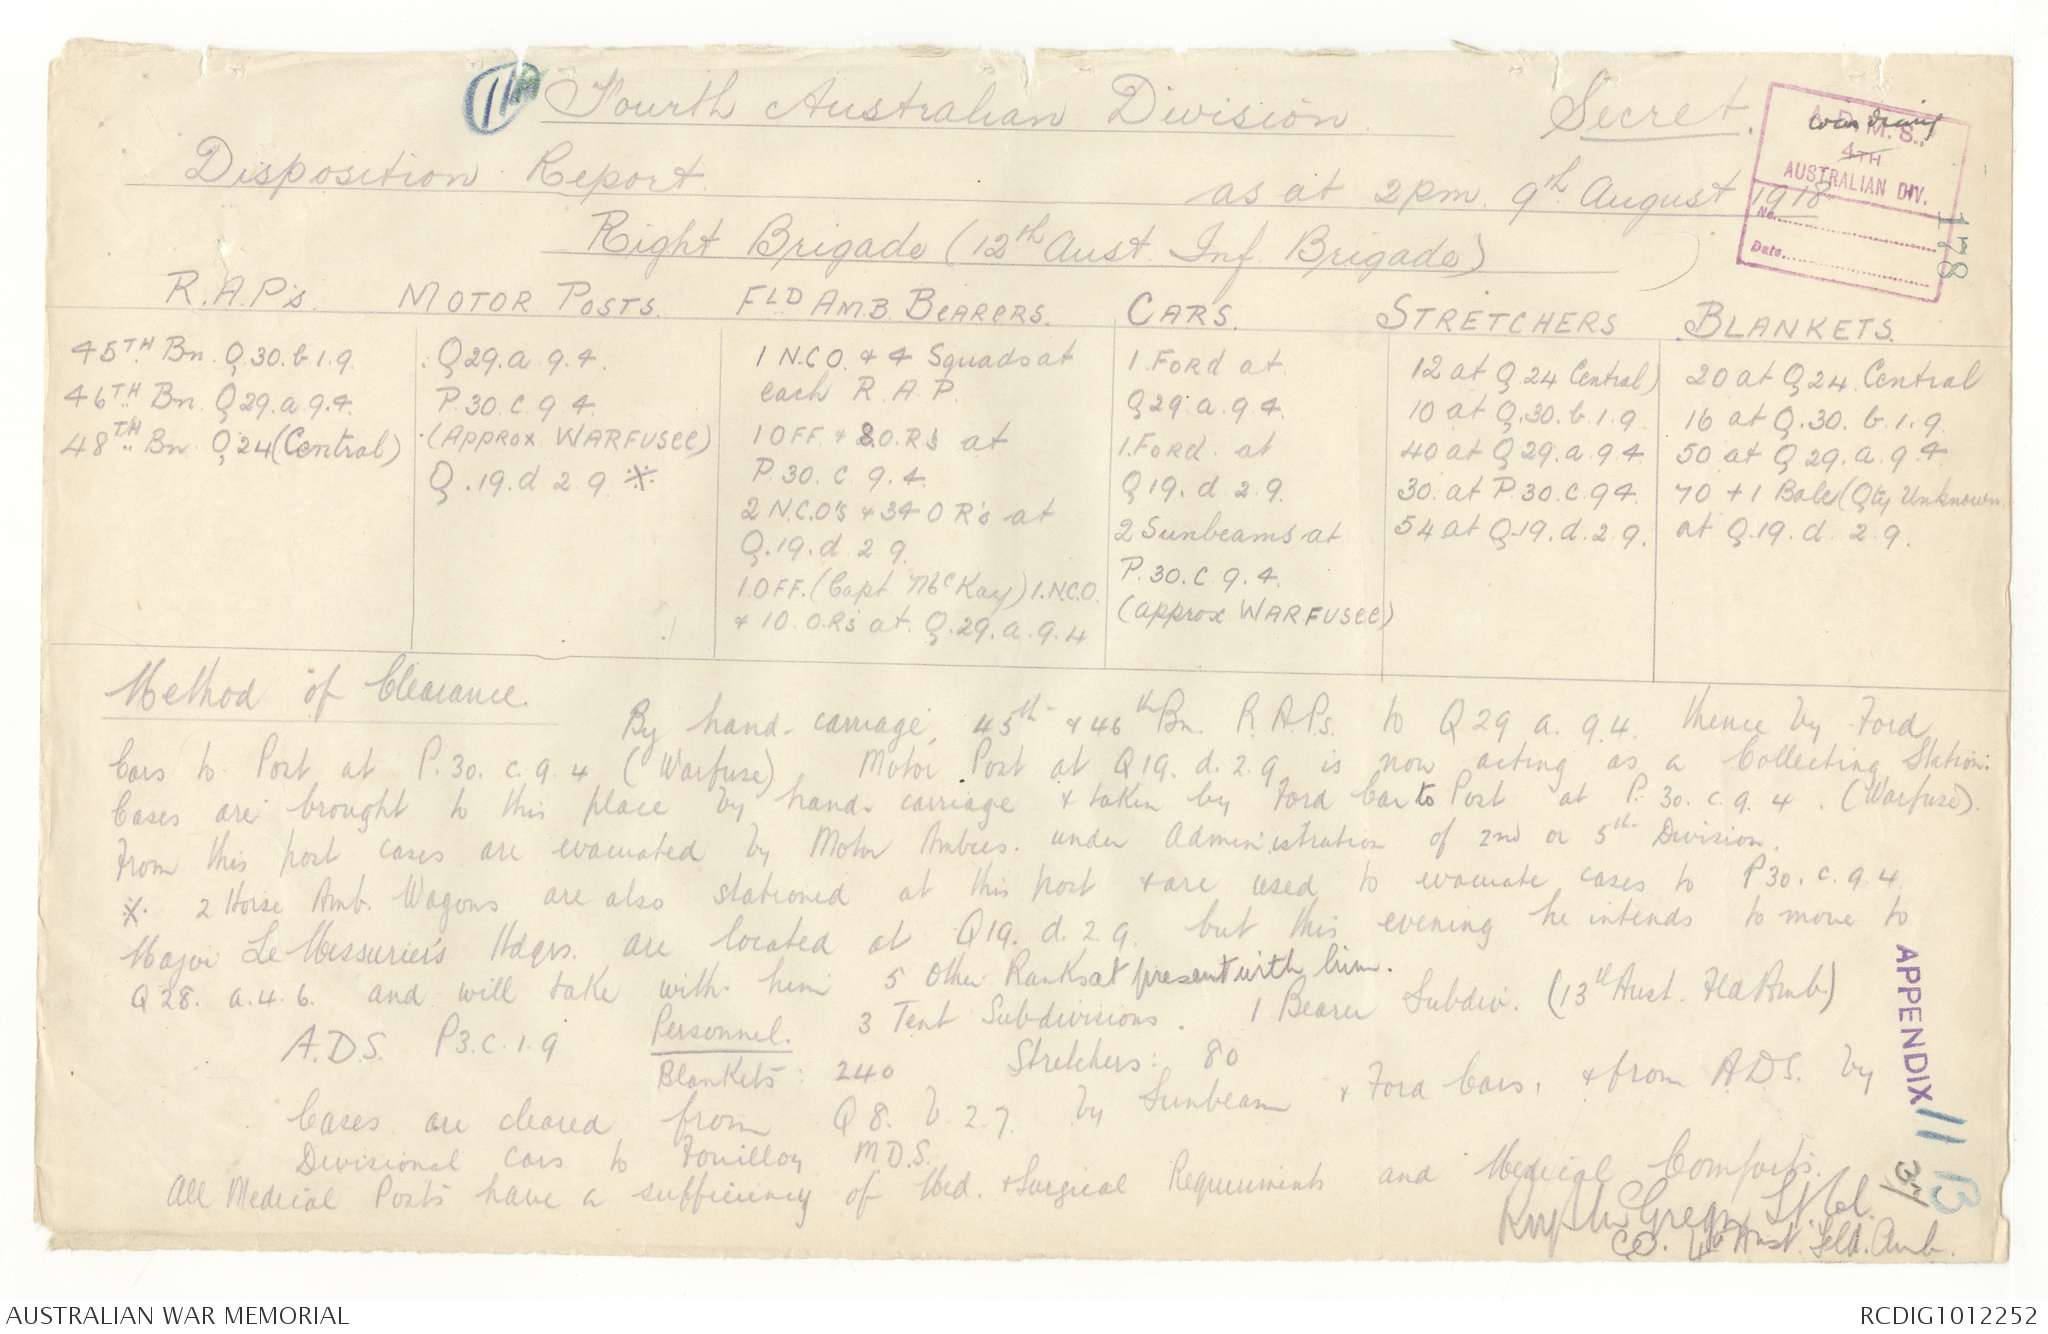 11A
Fourth Australian Division.
Secret.
War Diary
A.D.M.S.,
4TH
AUSTRALIAN DIV.
No.
Date.
178
Disposition Report as at 2pm. 9th August 1918
Right Brigade (12th Aust. Inf. Brigade)
R.A.P's.
45TH Bn. Q.30.b.1.9.
46TH Bn. Q29.a.9.4.
48TH Bn. Q24 (Central)
MOTOR POSTS.
Q29.a 9.4.
P.30.c.9.4.
(APPROX WARFUSEE)
Q.19.d 2.9 ※
FLD AMB BEARERS.
1 N.C.O. & 4 Squads at
each R.A.P.
1 OFF. & 8 O.R's at
P.30.c.9.4.
2 N.C.O's & 34 O R's at
Q.19.d 2 9.
1.OFF. (Capt McKay) 1.N.C.O.
& 10. O.Rs at Q.29.a.9.4
CARS.
1 FORD at
Q29.a.9.4.
1.FORD. at
Q19.d 2.9.
2 Sunbeams at
P.30.c.9.4.
(approx WARFUSEE)
STRETCHERS
12 at Q 24 Central)
10 at Q.30.b 1.9
40 at Q29.a.9 4
30. at P.30.c.9 4.
54 at Q.19.d.2.9.
BLANKETS.
20 at Q24 Central
16 at Q.30. b.1.9.
50 at Q 29.a.9 4.
70 + 1 Bale (Qty Unknown
at Q.19.d. 2.9.
Method of Clearance.
By hand-carriage, 45th & 46th Bn. R.A.Ps. to Q29 a.9.4. thence by Ford
Cars to Post at P.30.c.9.4 (Warfuse) Motor Post at Q19.d.2.9 is now acting as a Collecting Station:
Cases are brought to this place by hand-carriage & taken by Ford Car to Post at P.30.c.9.4. (Warfuse).
From this post cases are evacuated by Motor Ambces. under administration of 2nd or 5th Division.
※ 2 Horse Amb. Wagons are also stationed at this post & are used to evacuate cases to P30.c.9.4.
Major Le Messurier's Hdqrs. are located at Q19.d.2.9. but this evening he intends to move to
Q28.a.4.6. and will take with him 5 Other Ranks at present with him.
A.D.S. P3.c.1.9 Personnel. 3 Tent Subdivisions. 1 Bearer Subdiv. (13th Aust. Fld Amb.)
Blankets: 240 Stretchers: 80
Cases are cleared from Q8.b.2.7. by Sunbeam & Ford Cars, & from A.D.S. by
Divisional cars to Fouilloy M.D.S.
All Medical Posts have a sufficiency of Med. & Surgical Requirements and Medical Comforts.
Lt Col.
C.O. 4th Aust. Feld. Amb.
APPENDIX 11 B
AUSTRALIAN WAR MEMORIAL
RCDIG1012252